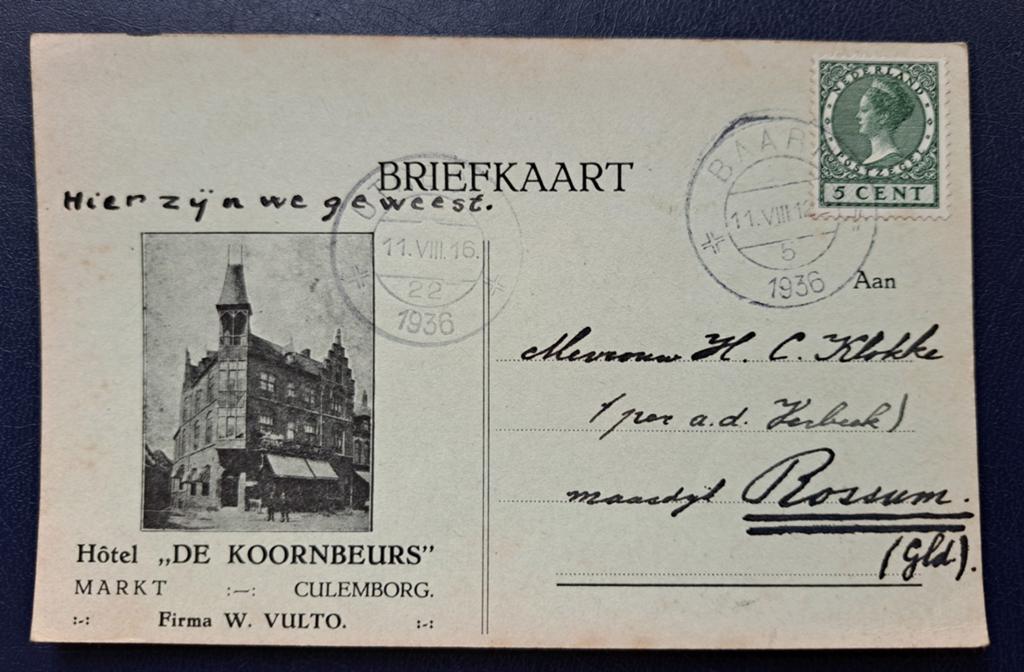 BRIEFKAART
Hier zijn we geweest.
11.VIII.16.
22
1936
BAAR
11.VIII 12
5
1936
NEDERLAND
POSTZEGEL
5 CENT
Aan
Mevrouw H. C. Klokke
(per a.d. Verbeek)
maasdijk Rossum.
(Gld).
Hôtel „DE KOORNBEURS”
MARKT :–: CULEMBORG.
:-: Firma W. VULTO. :-: